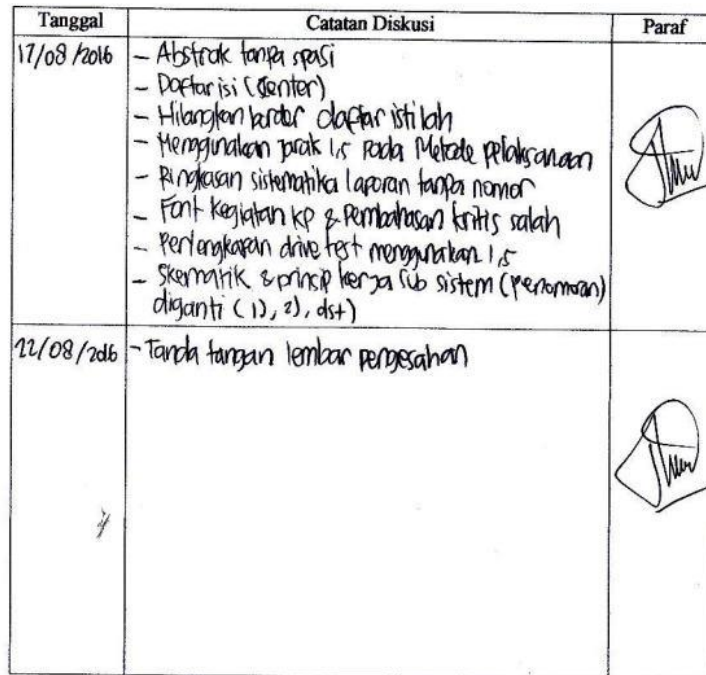 Tanggal Catatan Diskusi Paraf
17/08/2016 - Abstrak tanpa spasi
- Daftar isi (Center)
- Hilangkan border daftar istilah
- Menggunakan jarak 1,5 pada Metode pelaksanaan
- Ringkasan sistematika laporan tanpa nomor
- Font Kegiatan KP & Pembahasan kritis salah
- Perlengkapan drive test menggunakan 1,5
- Skematik & prinsip kerja sub sistem (penomoran)
diganti (1), 2), dst)
22/08/2016 - Tanda tangan lembar pengesahan